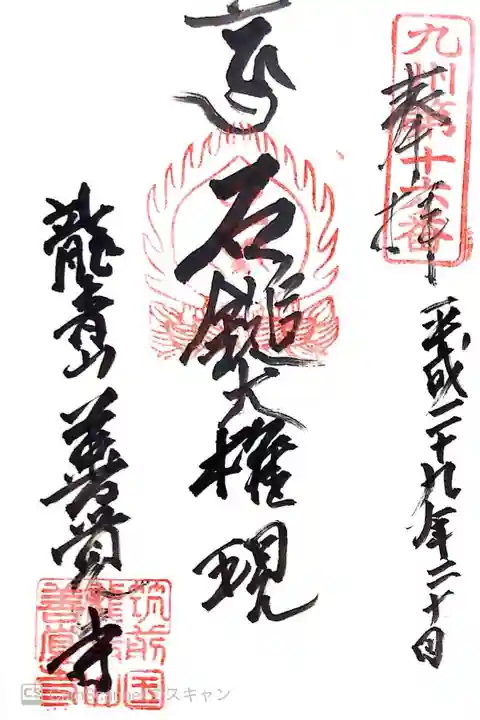 九州第十六番
奉拝
平成二十九年二十日
石鎚大権現
龍青山 善覚寺
筑前国
善覚寺
CS CamScanner でスキャン